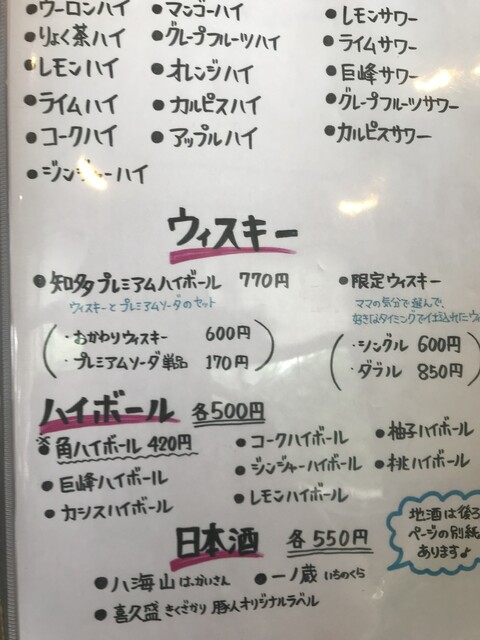 ・ウーロンハイ ・マンゴーハイ ・レモンサワー
・りょく茶ハイ ・グレープフルーツハイ ・ライムサワー
・レモンハイ ・オレンジハイ ・巨峰サワー
・ライムハイ ・カルピスハイ ・グレープフルーツサワー
・コークハイ ・アップルハイ ・カルピスサワー
・ジンジャーハイ
ウィスキー
・知多プレミアムハイボール 770円
ウィスキーとプレミアムソーダのセット
(・おかわりウィスキー 600円
・プレミアムソーダ単品 170円)
・限定ウィスキー
ママの気分で選んで、
好きなタイミングで仕込れたウィ
(・シングル 600円
・ダブル 850円
ハイボール 各500円
※・角ハイボール 420円 ・コークハイボール ・柚子ハイボール
・巨峰ハイボール ・ジンジャーハイボール ・桃ハイボール
・カシスハイボール ・レモンハイボール
地酒は後ろ
ページの別紙
あります♪
日本酒 各550円
・八海山 はっかいさん ・一ノ蔵 いちのくら
・喜久盛 きくざかり 豚人オリジナルラベル